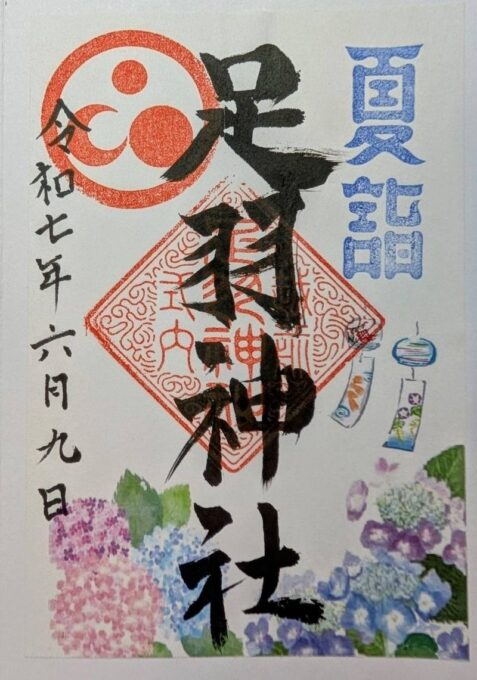 夏詣
足羽神社
令和七年六月九日